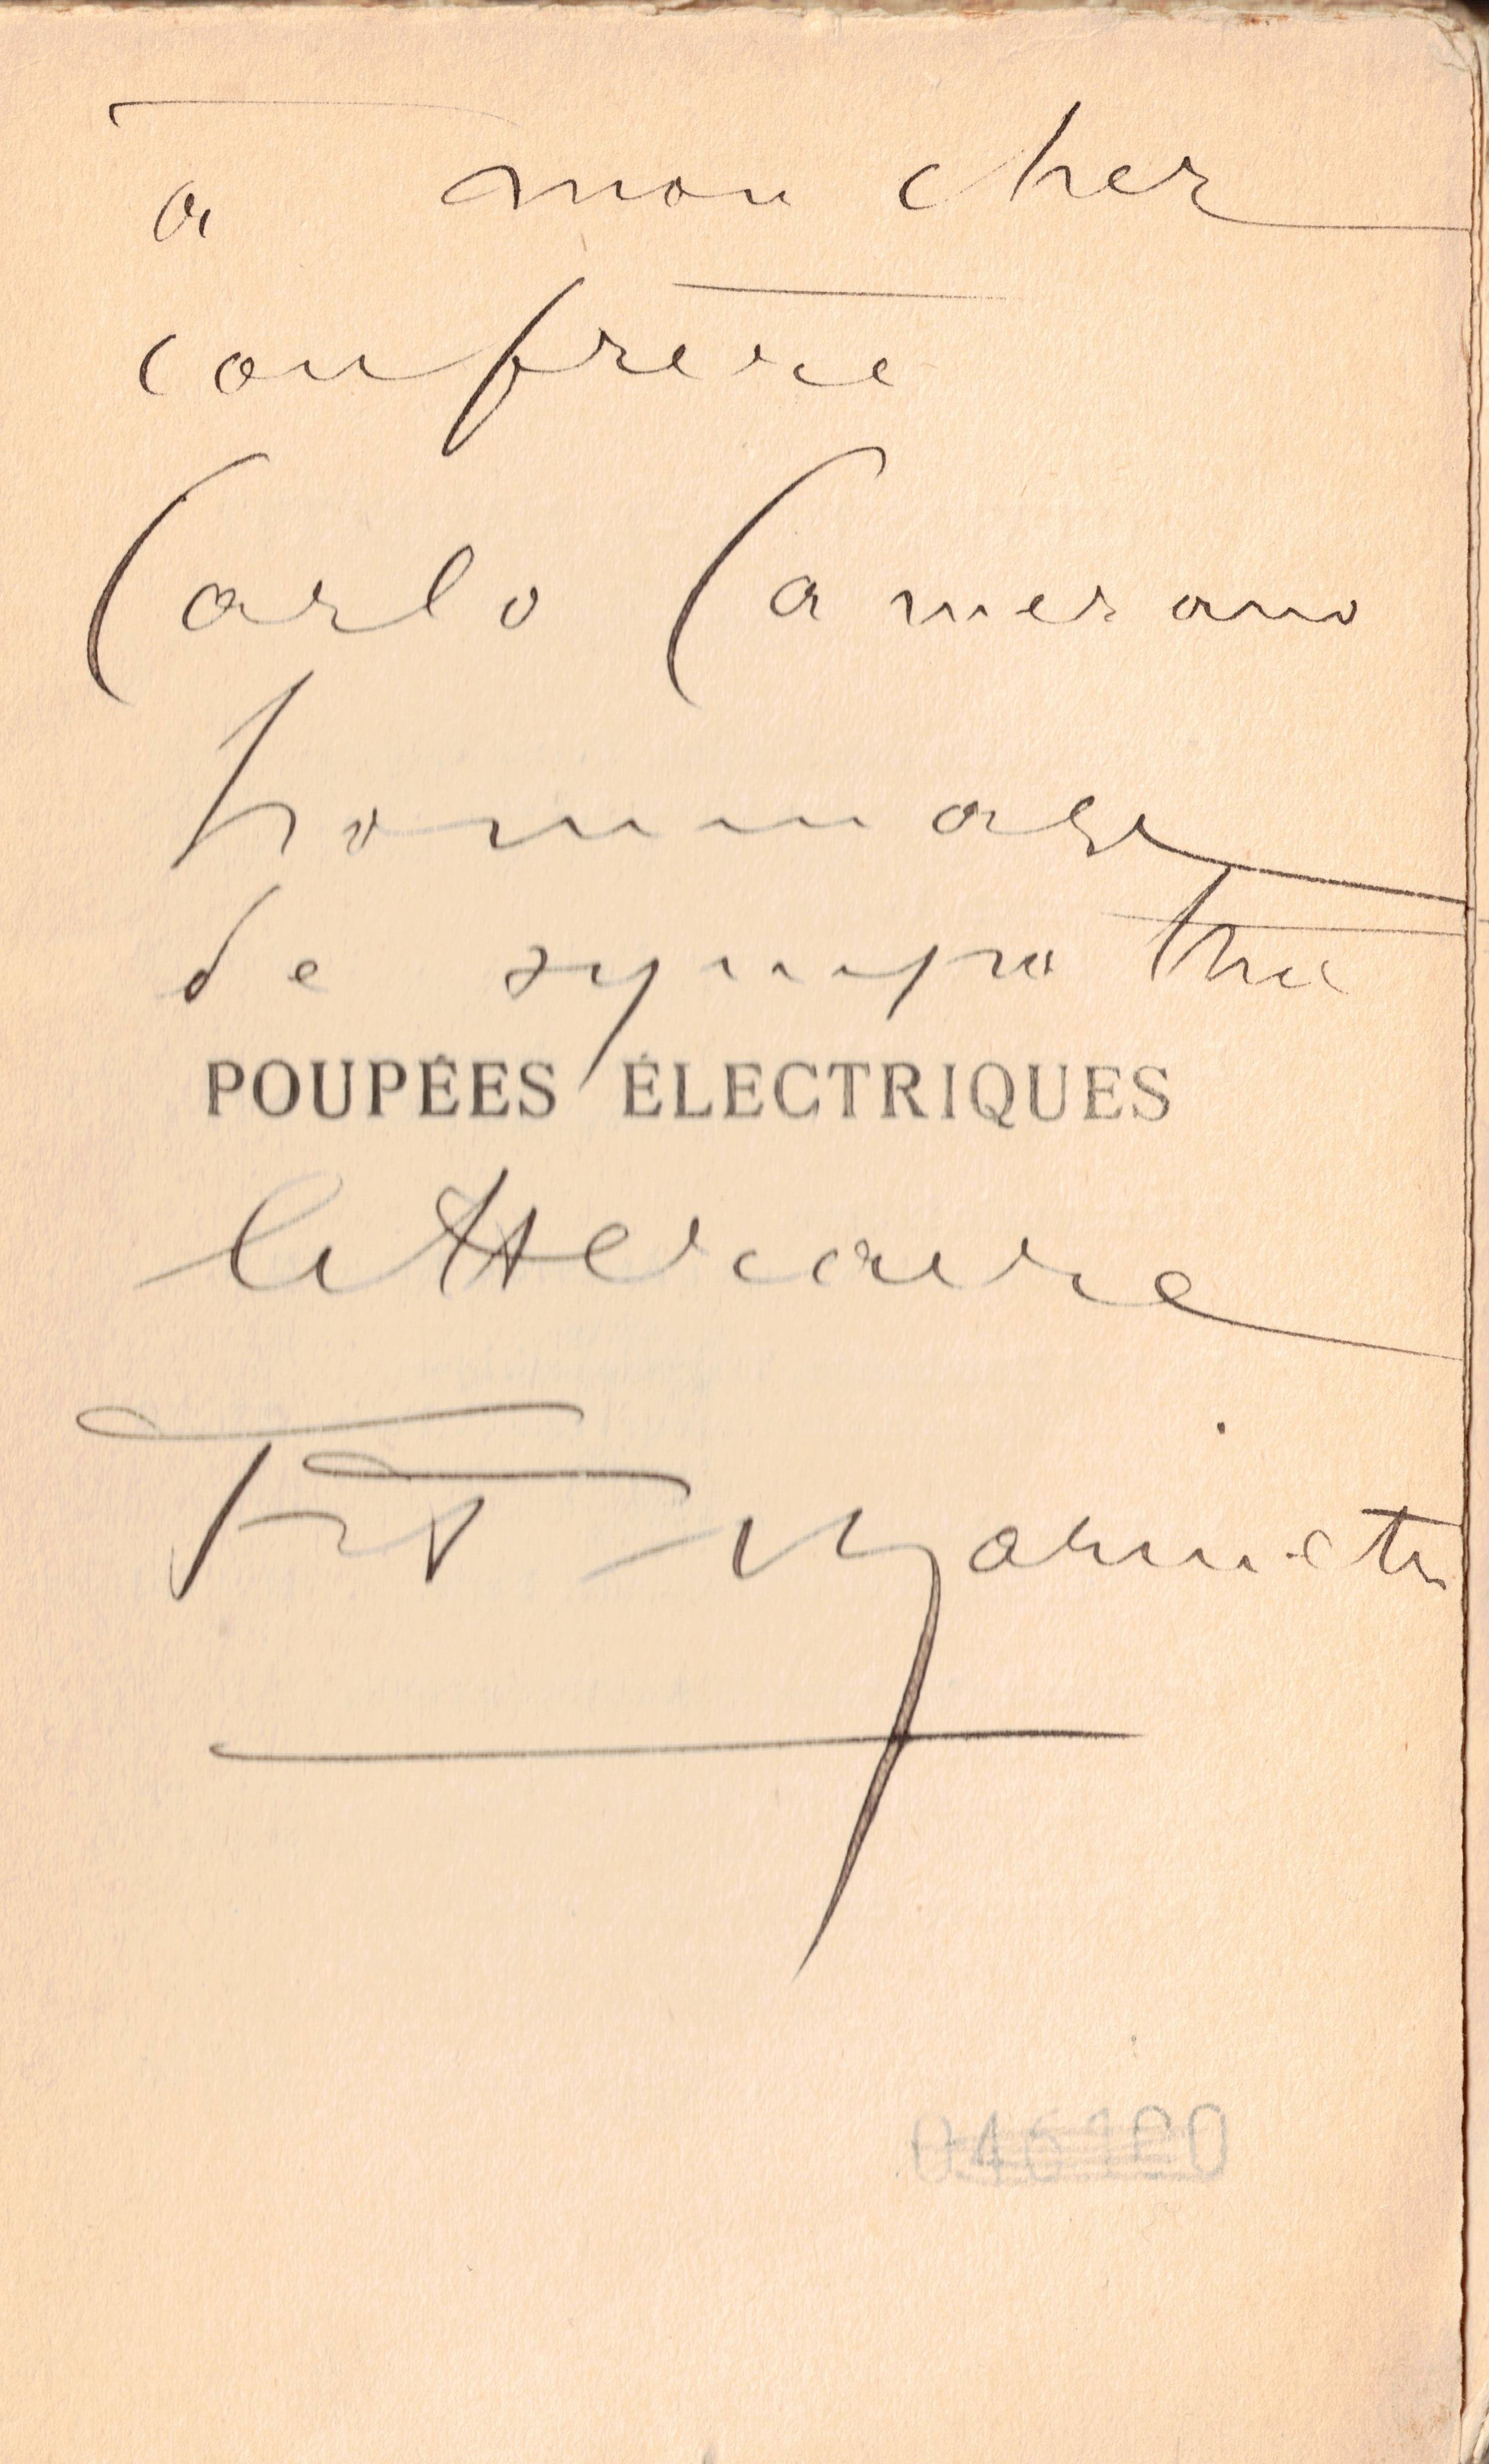 à mon cher
confrère
Carlo Camerano
hommage
de sympathie
POUPÉES ÉLECTRIQUES
littéraire
FT Marinetti